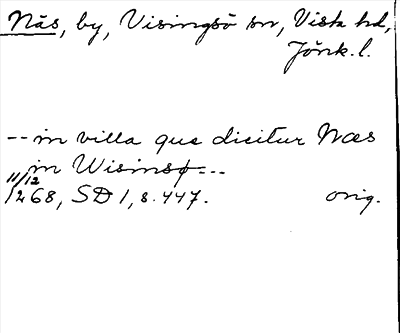 Näs, by, Visingsö sn, Vista hd,
Jönk. l.
-- in villa que dicitur Næs
in Wisinsø ---
11/12
1268, SD 1, s. 447. orig.